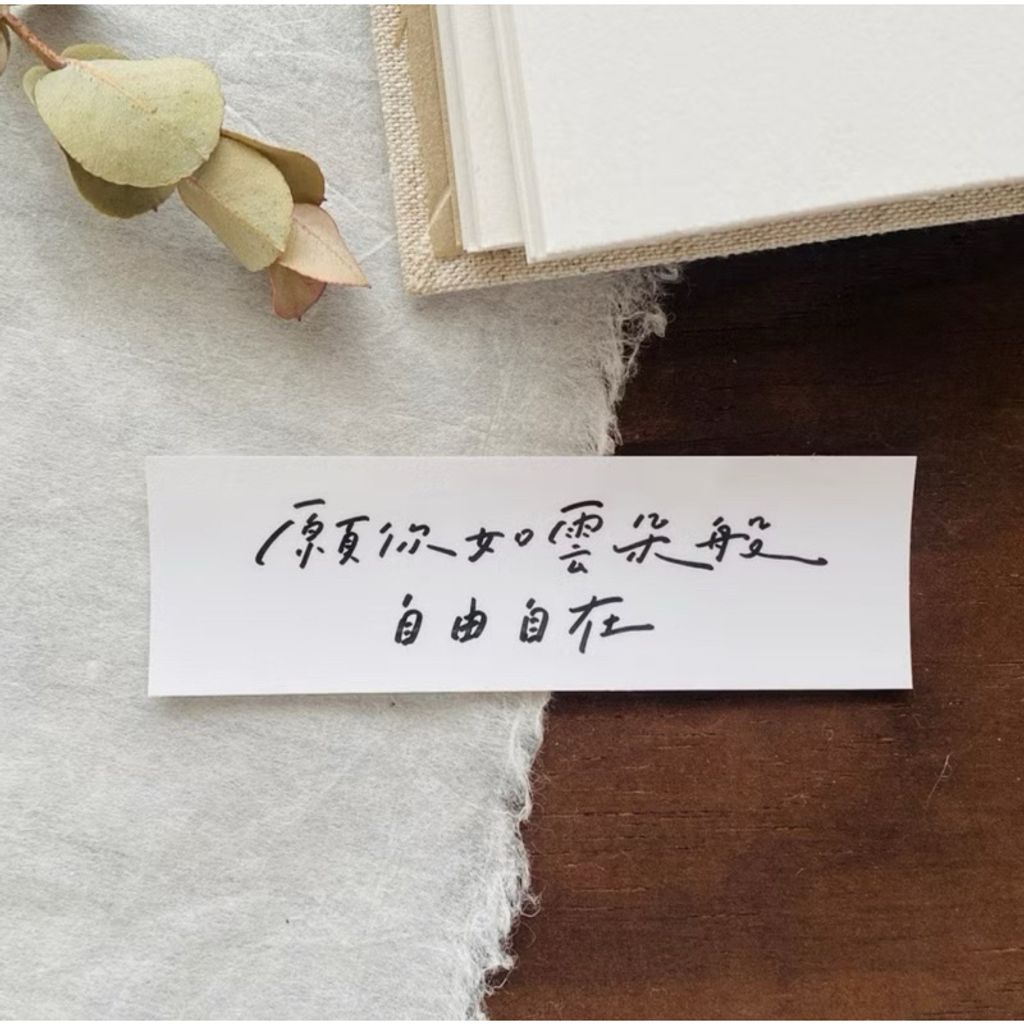 願你如雲朵般
自由自在